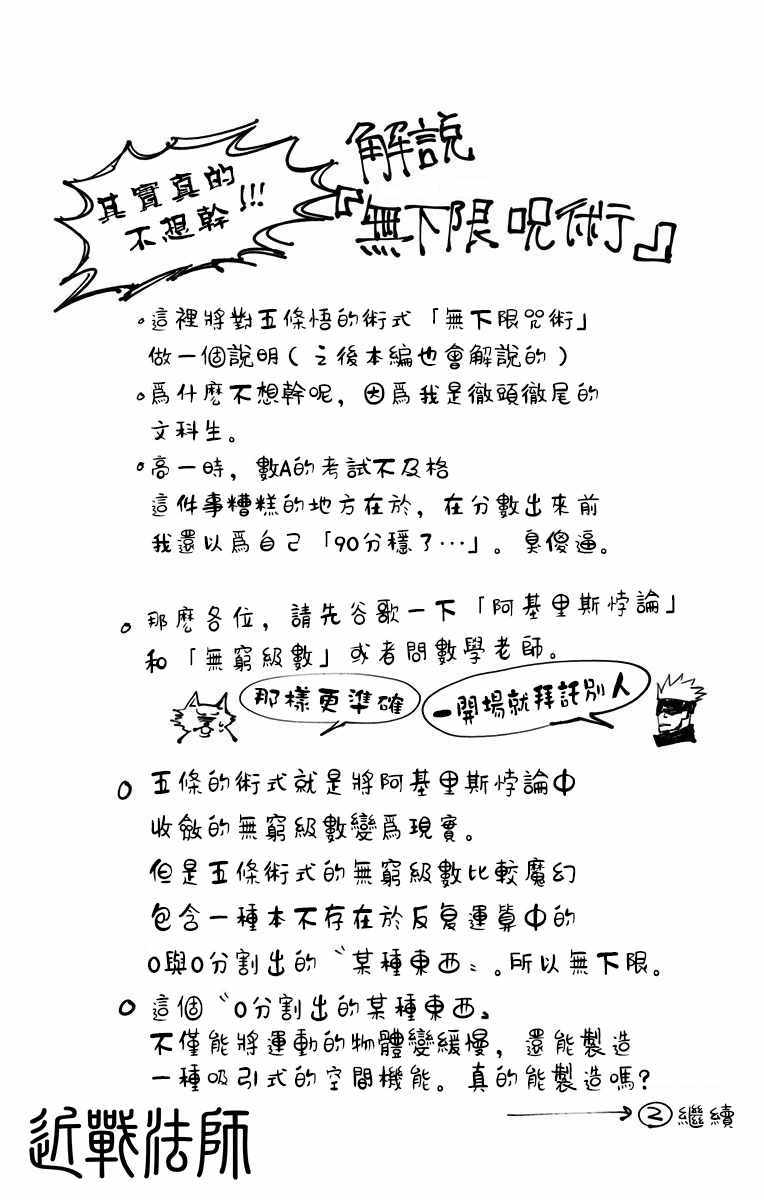 解說
『無下限呪術』
其實真的
不想幹!!!
。這裡將對五條悟的術式「無下限咒術」
做一個說明(之後本編也會解說的)
。爲什麽不想幹呢,因爲我是徹頭徹尾的
文科生。
。高一時,數A的考試不及格
這件事糟糕的地方在於,在分數出來前
我還以爲自己「90分穩了…」。臭傻逼。
。那麽各位,請先谷歌一下「阿基里斯悖論」
和「無窮級數」或者問數學老師。
那樣更準確
一開場就拜託別人
○五條的術式就是將阿基里斯悖論中
收斂的無窮級數變爲現實。
但是五條術式的無窮級數比較魔幻
包含一種本不存在於反复運算中的
0與0分割出的〝某種東西〟。所以無下限。
○這個〝0分割出的某種東西〟
不僅能將運動的物體變緩慢,還能製造
一種吸引式的空間機能。真的能製造嗎?
→②繼續
近戰法師